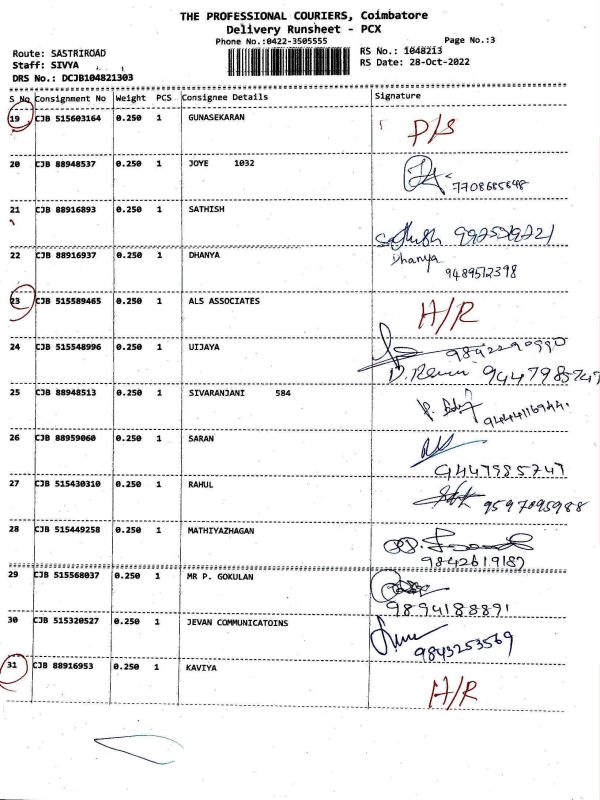 THE PROFESSIONAL COURIERS, Coimbatore
Delivery Runsheet - PCX
Phone No.:0422-3505555
Page No.:3
Route: SASTRIROAD
RS No.: 1048213
Staff: SIVYA
RS Date: 28-Oct-2022
DRS No.: DCJB104821303
S No Consignment No Weight PCS Consignee Details Signature
19 CJB 515603164 0.250 1 GUNASEKARAN P/S
20 CJB 88948537 0.250 1 JOYE 1032
7708685848
21 CJB 88916893 0.250 1 SATHISH
Sathish
22 CJB 88916937 0.250 1 DHANYA Dhanya
9489512398
23 CJB 515589465 0.250 1 ALS ASSOCIATES H/R
24 CJB 515548996 0.250 1 UIJAYA
9842290990
9447985747
25 CJB 88948513 0.250 1 SIVARANJANI 584
26 CJB 88959060 0.250 1 SARAN
9447985747
27 CJB 515430310 0.250 1 RAHUL
9597095988
28 CJB 515449258 0.250 1 MATHIYAZHAGAN
9842619187
29 CJB 515568037 0.250 1 MR P. GOKULAN
9894188891
30 CJB 515320527 0.250 1 JEVAN COMMUNICATOINS
9843253569
31 CJB 88916953 0.250 1 KAVIYA H/R